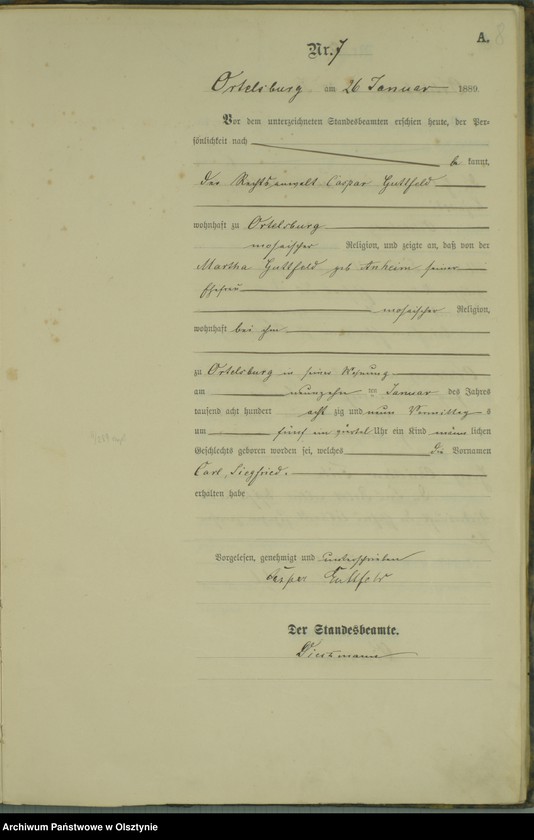 A.
8
Nr. 7
Ortelsburg am 26 Januar 1889.
Vor dem unterzeichneten Standesbeamten erschien heute, der Per-
sönlichkeit nach
be kannt,
der Rechtsanwalt Caspar Guttfeld
wohnhaft zu Ortelsburg
mosaischer Religion, und zeigte an, daß von der
Martha Guttfeld geb Anheim seiner
Ehefrau
mosaischer Religion,
wohnhaft bei ihm
zu Ortelsburg in seiner Wohnung
am neunzehn ten Januar des Jahres
tausend acht hundert acht zig und neun Vormittag s
um fünf ein Uhr ein Kind männ lichen
Geschlechts geboren worden sei, welches die Vornamen
Carl, Siegfried.
erhalten habe
Vorgelesen, genehmigt und unterschrieben
Caspar Guttfeld
Der Standesbeamte.
Archiwum Państwowe w Olsztynie